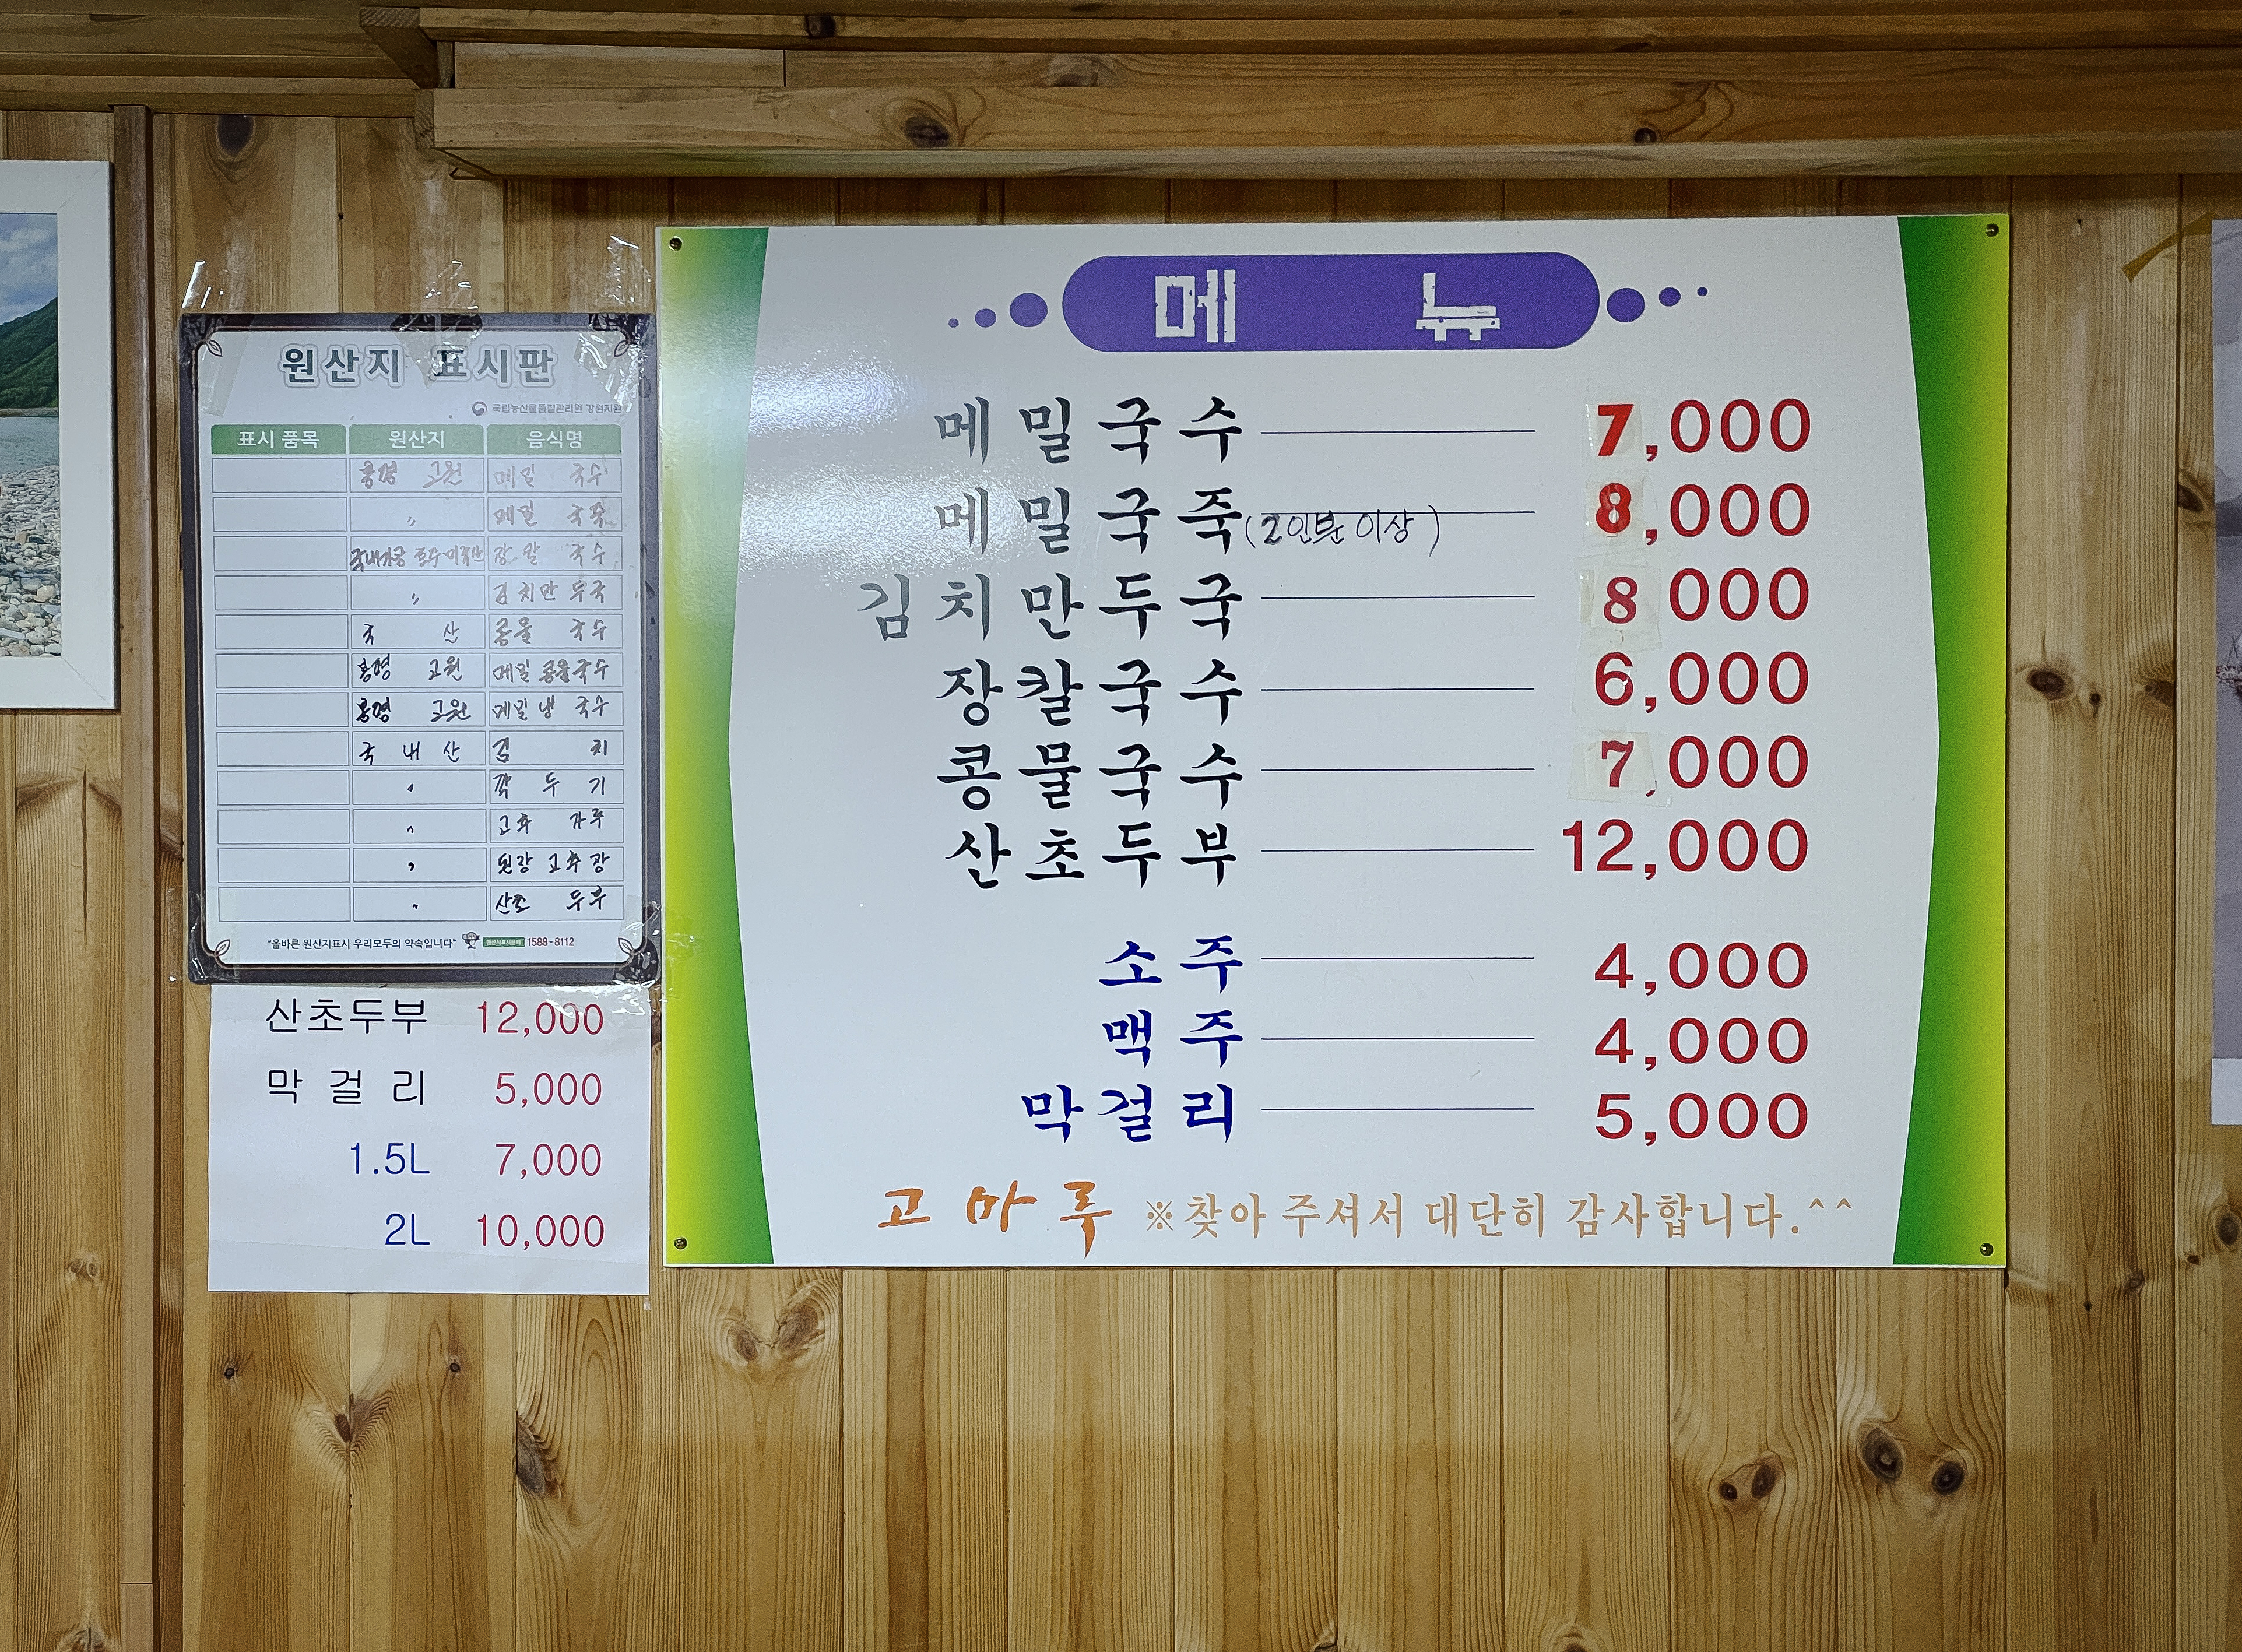 원산지 표시판
국립농산물품질관리원 강원지원
표시 품목 원산지 음식명
봉평 고원 메밀 국수
〃 메밀 국죽
국내가공 호주·미국산 장 칼 국수
〃 김치만두국
국 산 콩물 국수
봉평 고원 메밀 콩물국수
봉평 고원 메밀 냉 국수
국 내 산 김 치
〃 깍 두 기
〃 고추 가루
〃 된장 고추장
〃 산초 두부
"올바른 원산지표시 우리모두의 약속입니다" 1588-8112
산초두부 12,000
막 걸 리 5,000
1.5L 7,000
2L 10,000
메 뉴
메밀국수 7,000
메밀국죽 (2인분 이상) 8,000
김치만두국 8 000
장칼국수 6,000
콩물국수 7,000
산초두부 12,000
소주 4,000
맥주 4,000
막걸리 5,000
고 마 루 ※찾아 주셔서 대단히 감사합니다.^^